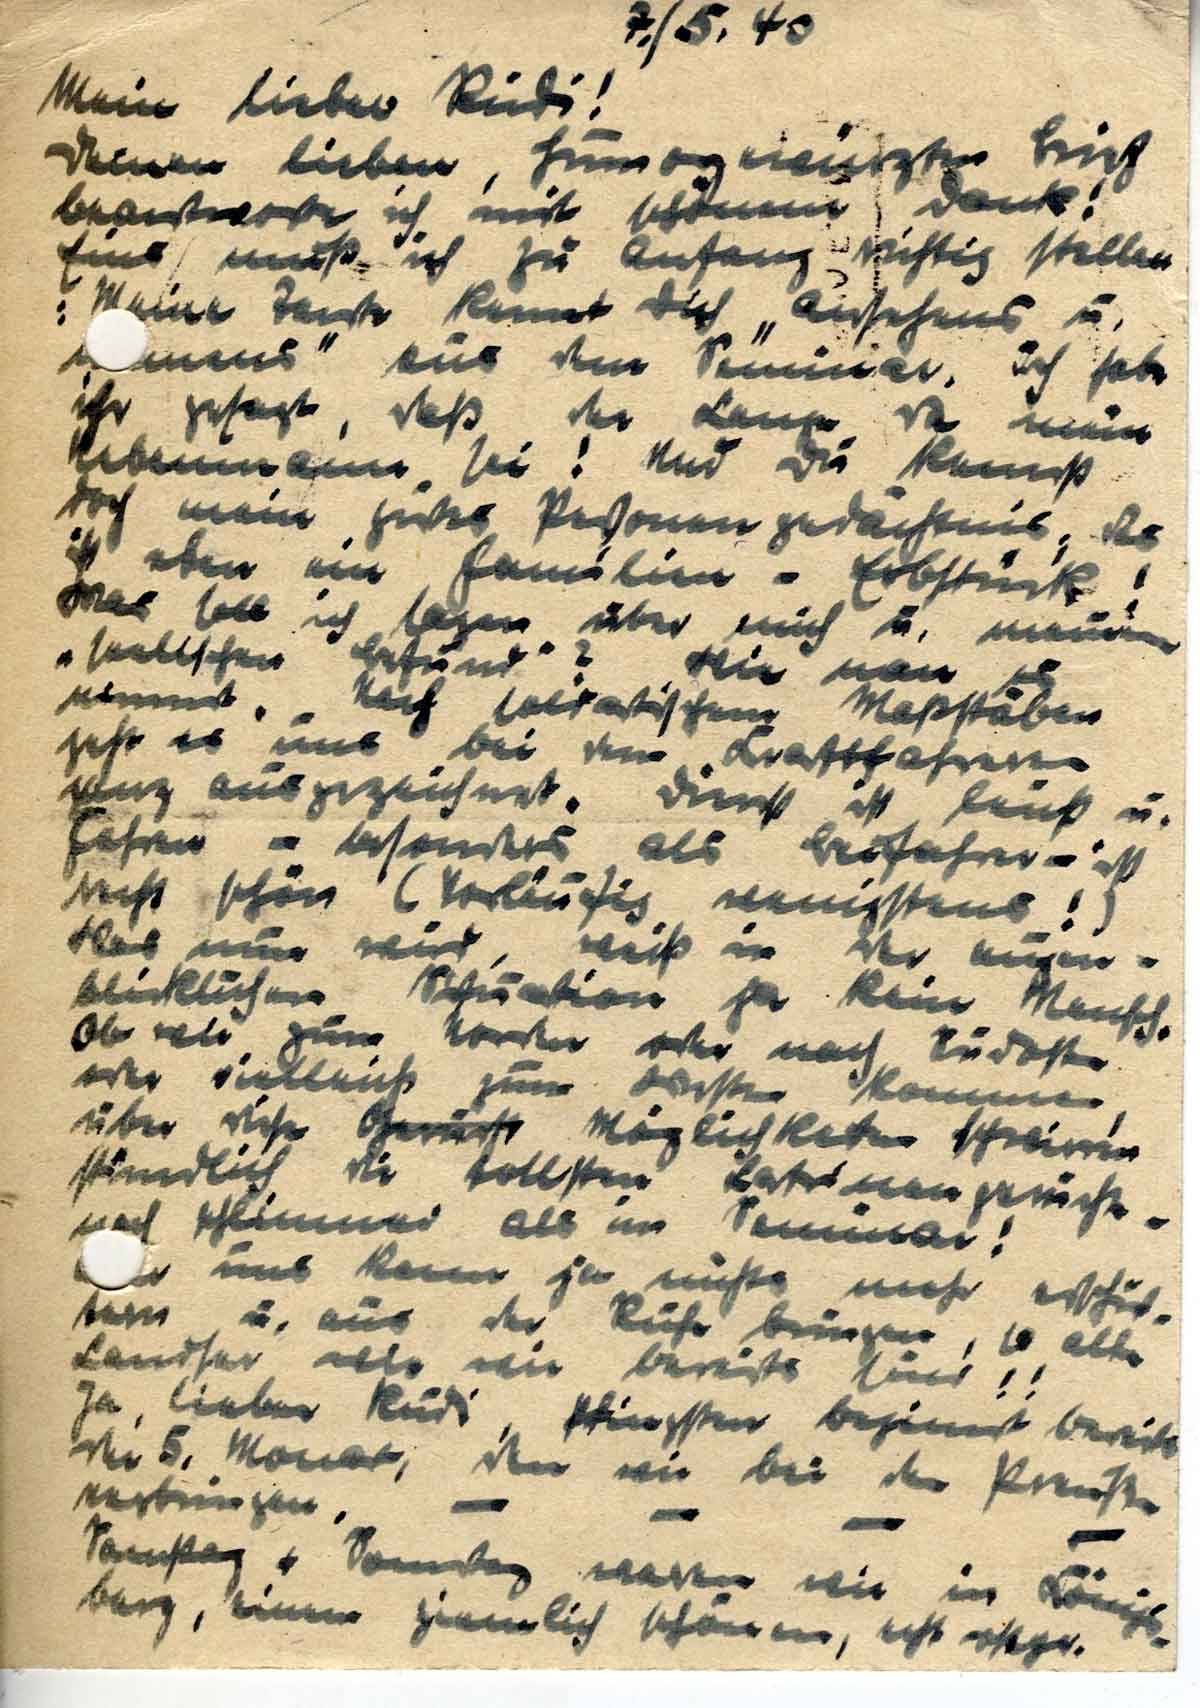 7./5. 40
Mein lieber Rudi!
Deinen lieben, humorgewürzten Brief
beantworte ich mit schönem Dank!
Eins muß ich zu Anfang richtig stellen
: Meine Tante kennt Dich „Ansehens u.
" aus dem Seminar. Ich habe
ihr gesagt, daß der Lange da mein
Nebenmann sei! Und Du kennst
doch mein gutes Personengedächtnis, das
ist eben ein Familien - Erbstück!
Was soll ich sagen über mich u. meinen
"seelischen Befund"? Wie man es
nimmt. Nach soldatischem Maßstäben
geht es uns bei den Kraftfahrern
ganz ausgezeichnet. Dienst ist u.
Fahren - besonders als Beifahrer - ist
recht schön (vorläufig wenigstens!)
Was nun wird, weiß in der augen-
blicklichen Situation ja kein Mensch.
Ob wir zum Norden oder nach Südosten
oder vielleicht zum Westen kommen,
über diese Möglichkeiten schwirren
stündlich die tollsten Latrinengerüchte -
noch schlimmer als im Seminar!
Aber uns kann ja nichts mehr erschüt-
tern u. aus der Ruhe bringen, so alte
Landser wie wir bereits sind!!
Ja, lieber Rudi, Pfingsten beginnt bereits
der 5. Monat, den wir bei den Preußen
verbringen. — — — —
Samstag + Sonntag waren wir in Königs-
berg, einem ziemlich schönen, echt ostpr.